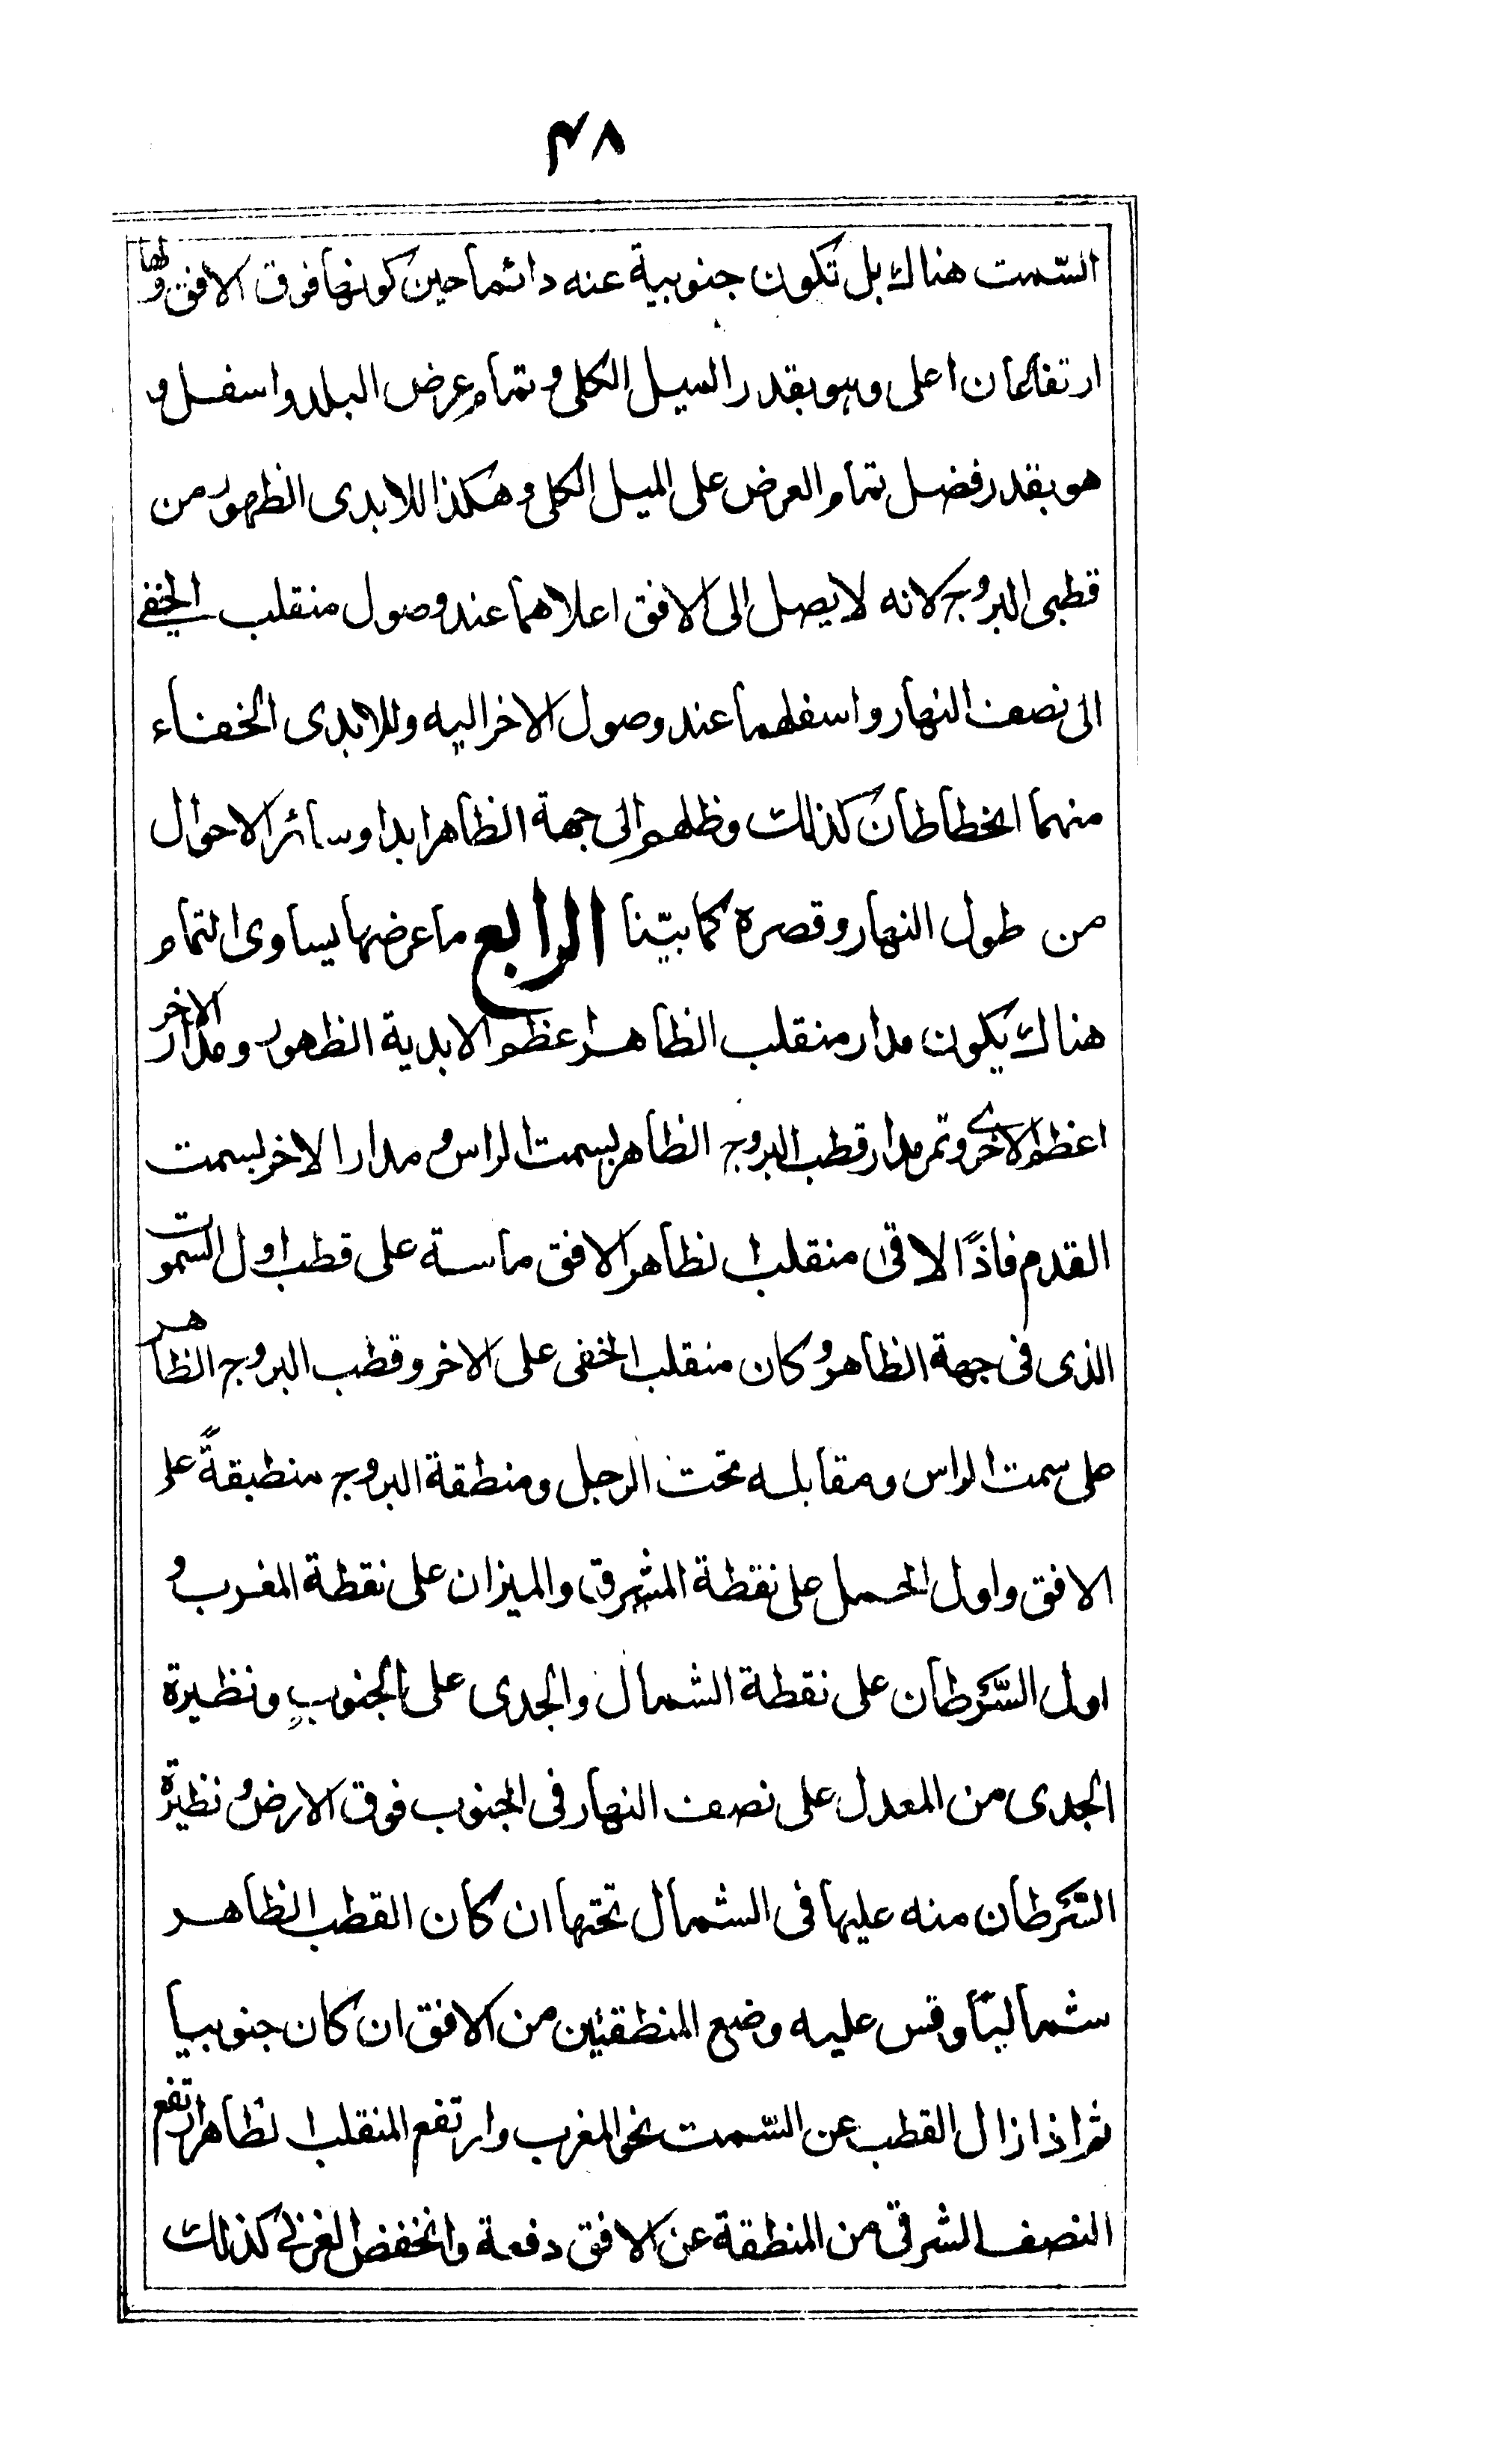 ٤٨
السّمت هناك بل تكون جنوبية عنه دائما حين كونها فوق الافق ولها
ارتفاعان اعلى وهو بقدر الميل الكلى وتمام عرض البلد واسفل و
هو بقدر فضل تمام العرض على الميل الكلى وهكذا للابدى الظهور من
قطبى البروج لانه لا يصل الى الافق اعلاهما عند وصول منقلب الخفى
الى نصف النهار واسفلهما عند وصول الاخر اليه وللابدى الخفاء
منهما انحطاطان كذلك وظلهم الى جهة الظاهر ابدا وسائر الاحوال
من طول النهار وقصره كما بيّنا الرابع ما عرضها يساوى التمام
هناك يكون مدار منقلب الظاهر اعظم الابدية الظهور ومدار الاخر
اعظم الاخرى وتمر مدار قطب البروج الظاهر بسمت الراس ومدار الاخر بسمت
القدم فاذًا لاقى منقلب الظاهر الافق ماسة على قطب اول السموت
الذى فى جهة الظاهر وكان منقلب الخفى على الاخر وقطب البروج الظاهر
على سمت الراس ومقابله تحت الرجل ومنطقة البروج منطبقةً على
الافق واول الحمل على نقطة المشرق والميزان على نقطة المغرب و
اول السّرطان على نقطة الشمال والجدى على الجنوب ونظيرة
الجدى من المعدل على نصف النهار فى الجنوب فوق الارض ونظيرة
السّرطان منه عليها فى الشمال تحتها ان كان القطب الظاهر
شماليّا وقس عليه وضع المنطقتين من الافق ان كان جنوبيا
ثم اذا زال القطب عن السّمت نحو المغرب وارتفع المنقلب الظاهر ارتفع
النصف الشرقى من المنطقة عن الافق دفعة وانخفض الغربى كذلك